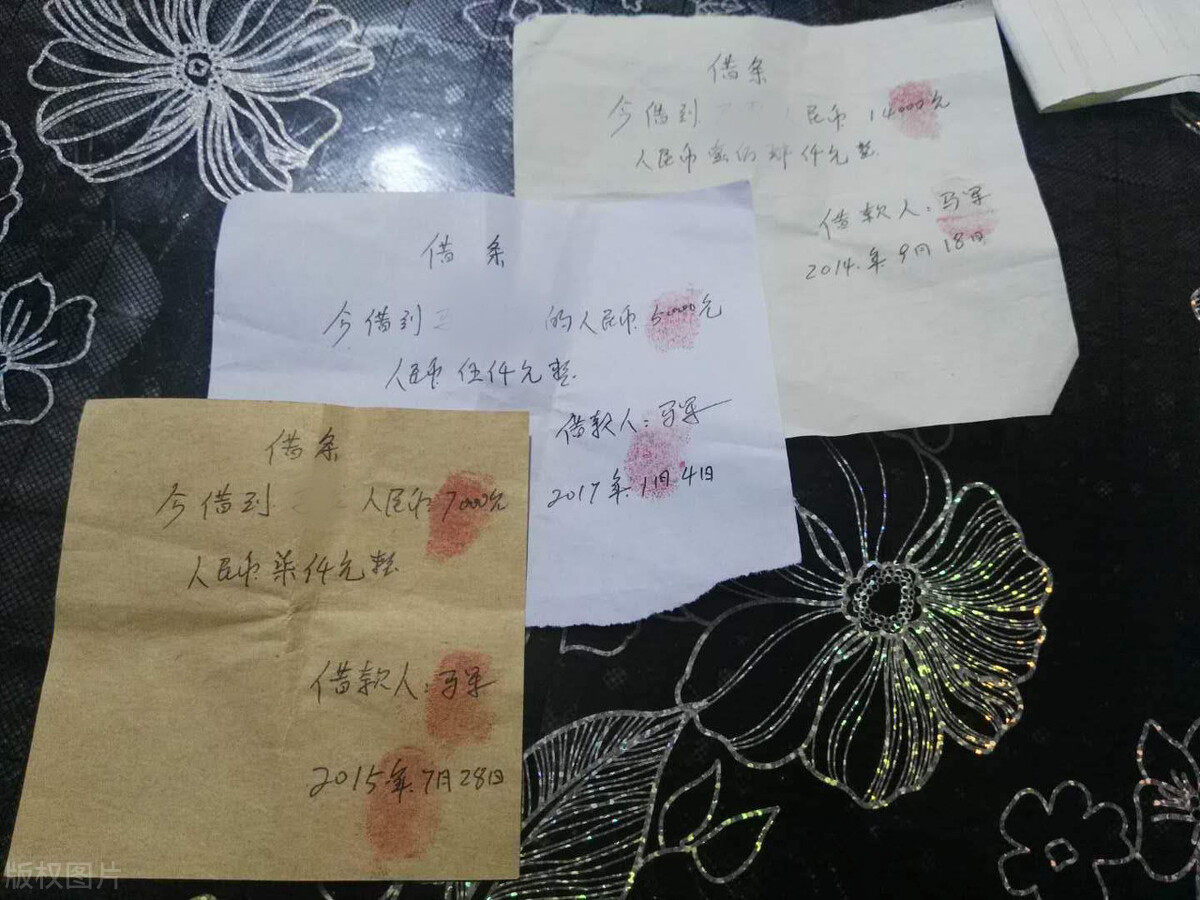 借条
今借到 民币 14000元
人民币壹 仟元整
借款人:马军
2014.年9月18日
借条
今借到 的人民币 元
人民币伍仟元整
借款人:马军
2017年1月4日
借条
今借到 人民币7000元
人民币柒仟元整
借款人:马军
2015年7月28日
版权图片